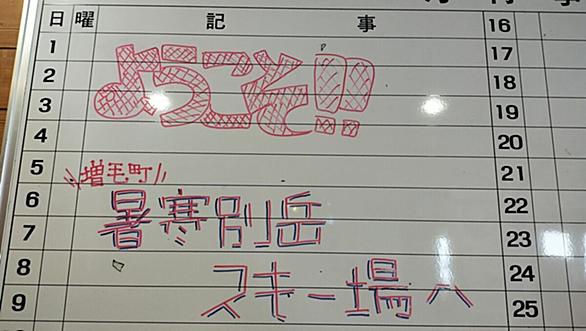 日 曜 記事 16
1 17
ようこそ!!
2 18
3 19
4 20
5 21
増毛町
6 22
暑寒別岳
7 23
8 24
スキー場へ
9 25